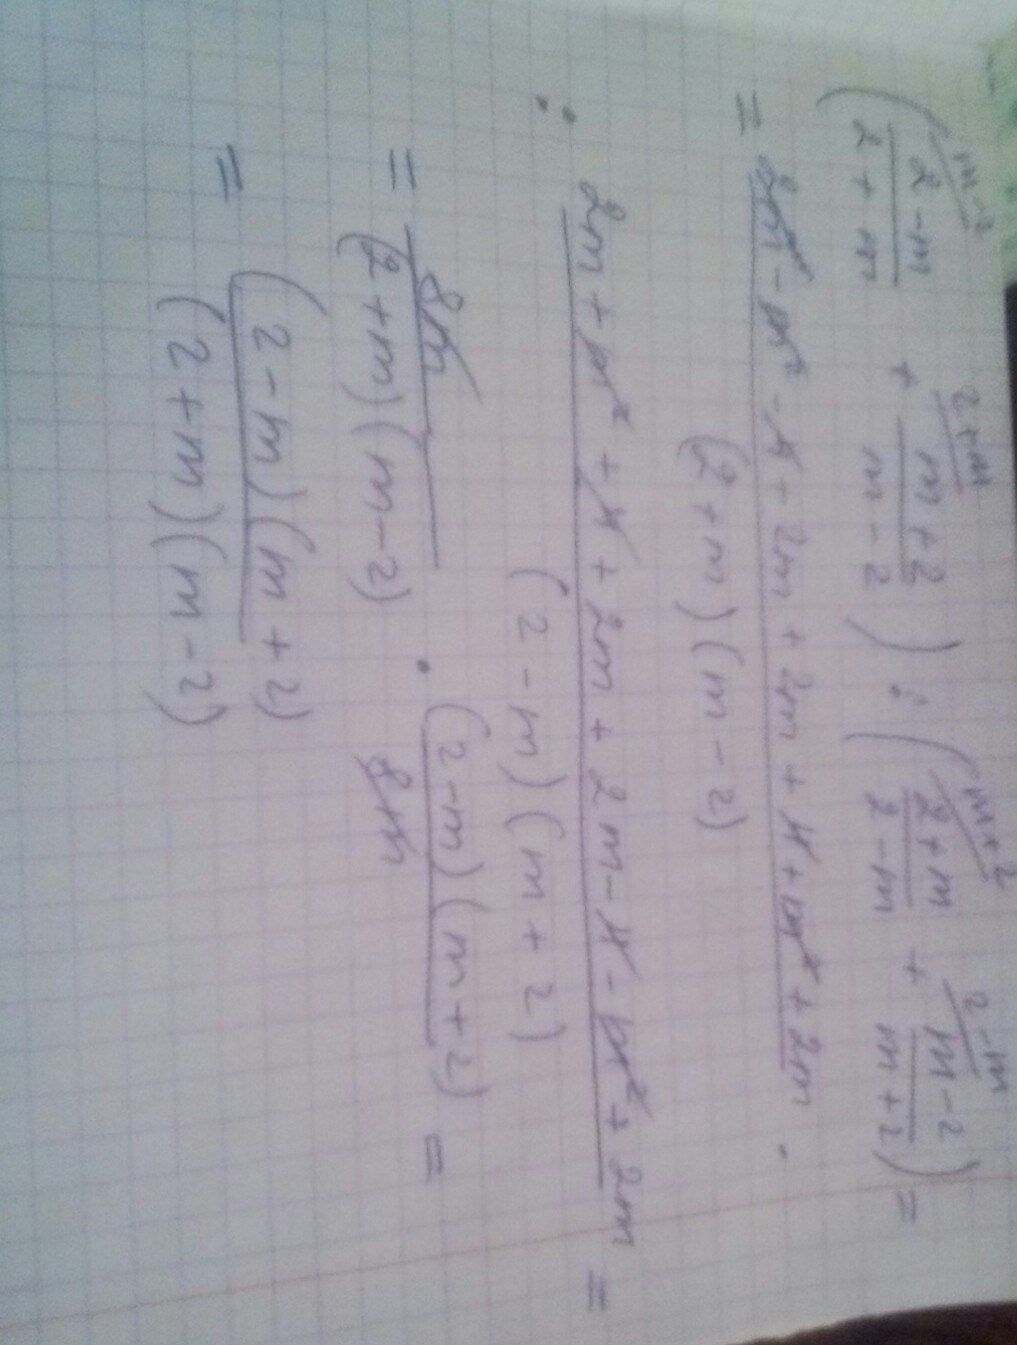 m-2 2+m m+2 2-m
(2-m/2+m + m+2/m-2) : (2+m/2-m + m-2/m+2) =
= 2m - m² - 4 + 2m + 2m + 4 + m² + 2m
(2+m)(m-2)
: 2m + m² + 4 + 2m + 2m - 4 - m² + 2m =
(2-m)(m+2)
= 8m/(2+m)(m-2) · (2-m)(m+2)/8m =
= (2-m)(m+2)
(2+m)(m-2)